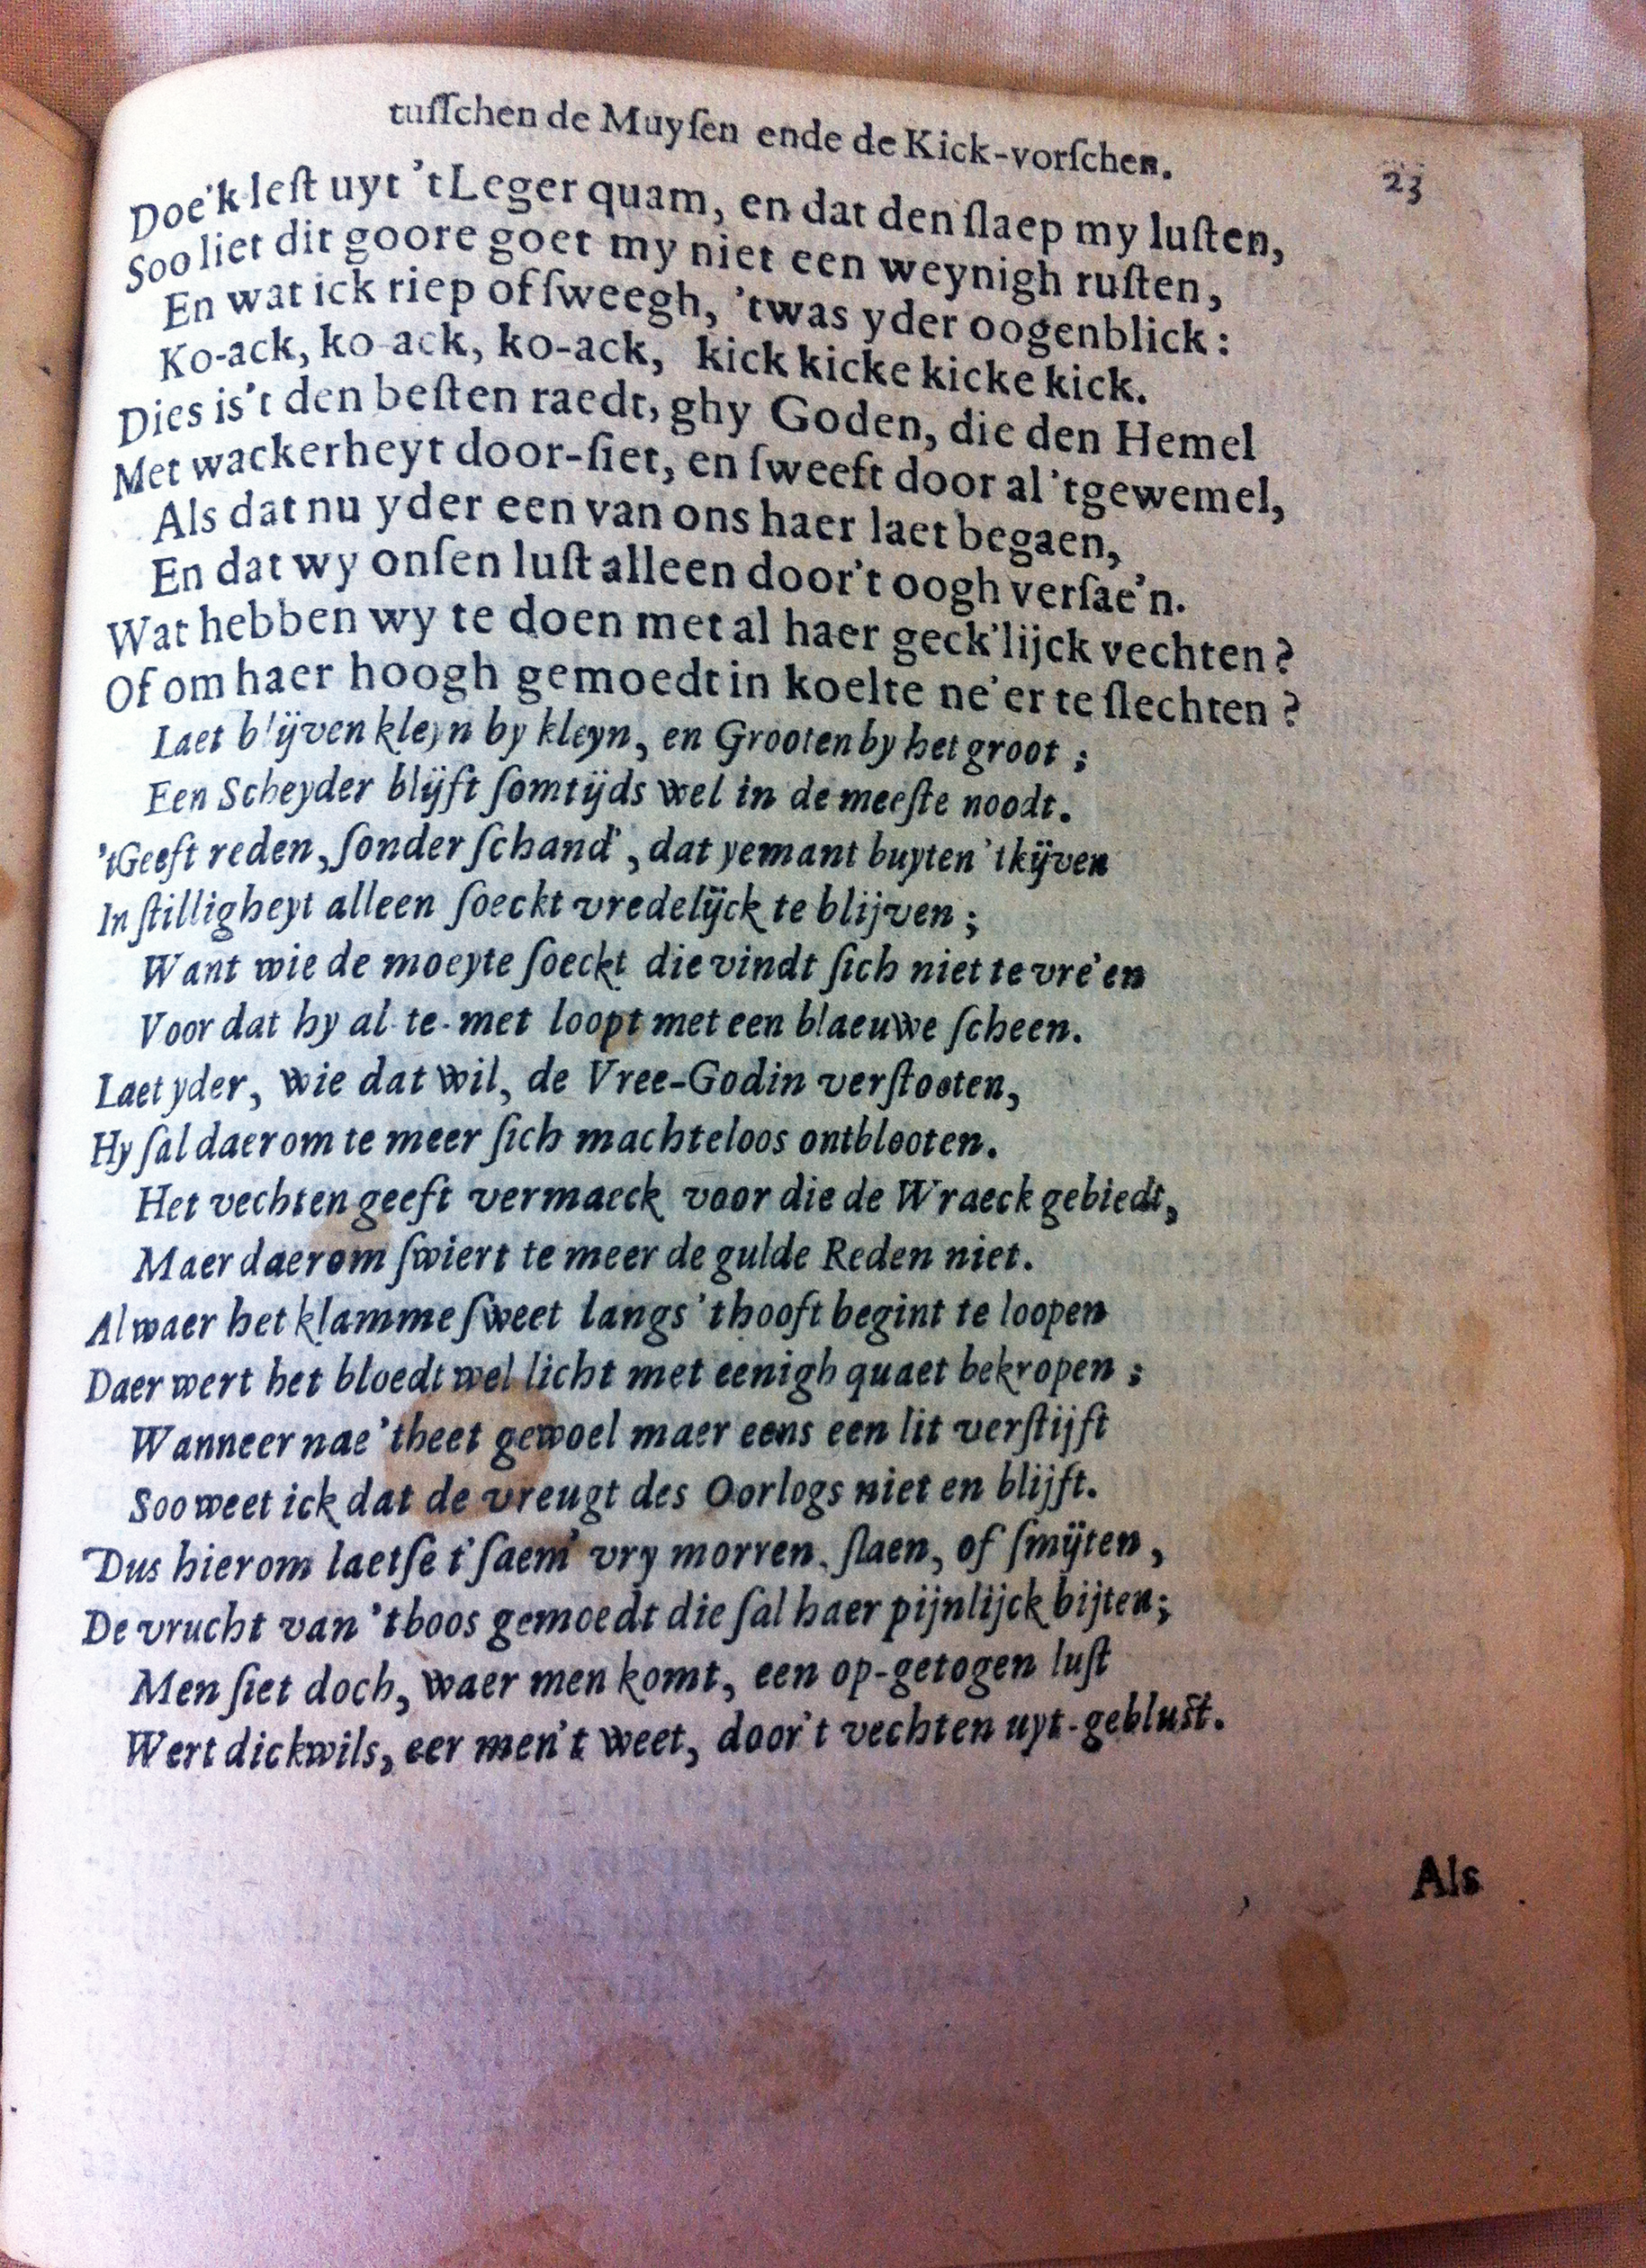 tuſſchen de Muyſen ende de Kick-vorſchen. 23
Doe'k leſt uyt 't Leger quam, en dat den ſlaep my luſten,
Soo liet dit goore goet my niet een weynigh ruſten,
En wat ick riep of ſweegh, 'twas yder oogenblick:
Ko-ack, ko-ack, ko-ack, kick kicke kicke kick.
Dies is't den beſten raedt, ghy Goden, die den Hemel
Met wackerheyt door-ſiet, en ſweeft door al 'tgewemel,
Als dat nu yder een van ons haer laet begaen,
En dat wy onſen luſt alleen door't oogh verſae'n.
Wat hebben wy te doen met al haer geck'lijck vechten?
Of om haer hoogh gemoedt in koelte ne'er te ſlechten?
Laet blijven kleyn by kleyn, en Grooten by het groot;
Een Scheyder blijft ſomtijds wel in de meeſte noodt.
't Geeft reden, ſonder ſchand', dat yemant buyten 't kijven
In ſtilligheyt alleen ſoeckt vredelijck te blijven;
Want wie de moeyte ſoeckt die vindt ſich niet te vre'en
Voor dat hy al-te-met loopt met een blaeuwe ſcheen.
Laet yder, wie dat wil, de Vree-Godin verſtooten,
Hy ſal daerom te meer ſich machteloos ontblooten.
Het vechten geeft vermaeck voor die de Wraeck gebiedt,
Maer daerom ſwiert te meer de gulde Reden niet.
Alwaer het klamme ſweet langs 't hooft begint te loopen
Daer wert het bloedt wel licht met eenigh quaet bekropen;
Wanneer nae 'theet gewoel maer eens een lit verſtijft
Soo weet ick dat de vreugt des Oorlogs niet en blijft.
Dus hierom laetſe t'ſaem' vry morren, ſlaen, of ſmijten,
De vrucht van 't boos gemoedt die ſal haer pijnlijck bijten;
Men ſiet doch, waer men komt, een op-getogen luſt
Wert dickwils, eer men't weet, door't vechten uyt-gebluſt.
Als